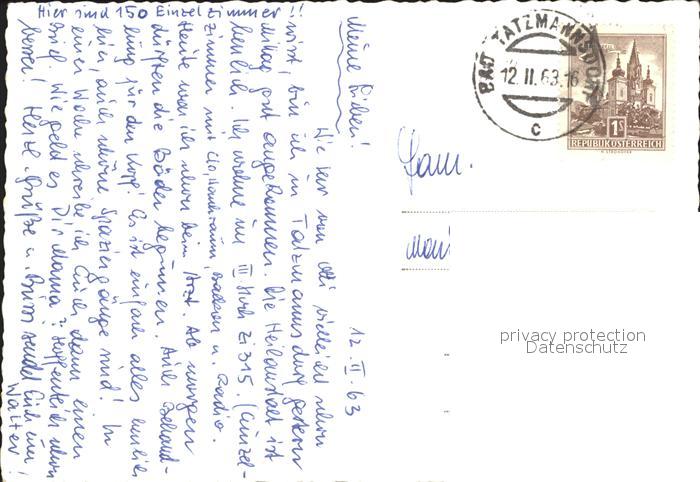 Hier sind 150 Einzelzimmer!!
12. II. 63
Meine Lieben!
Wie Ihr von Otti vielleicht schon
wisst, bin ich in Tatzmannsdorf gestern
Mittag gut angekommen. Die Heilanstalt ist
herrlich. Ich wohne im III Stock Zi 315. (Einzel-
zimmer mit Clo, Vorraum, Balkon u. Radio.
Heute war ich schon beim Arzt. Ab morgen
dürfen die Bäder beginnen. Auch Behand-
lung für den Kopf. Es ist einfach alles herrlich
hier, auch schöne Spaziergänge sind! In
einer Woche schreibe ich Euch dann einen
Brief. Wie geht es Dir Mama? Hoffentlich schon
besser! Herzl. Grüße u. Bussi sendet Euch Euer
Walter!
BAD TATZMANNSDORF
12. II. 63. 16
c
1 S
REPUBLIK ÖSTERREICH
Fam.
privacy protection
Datenschutz